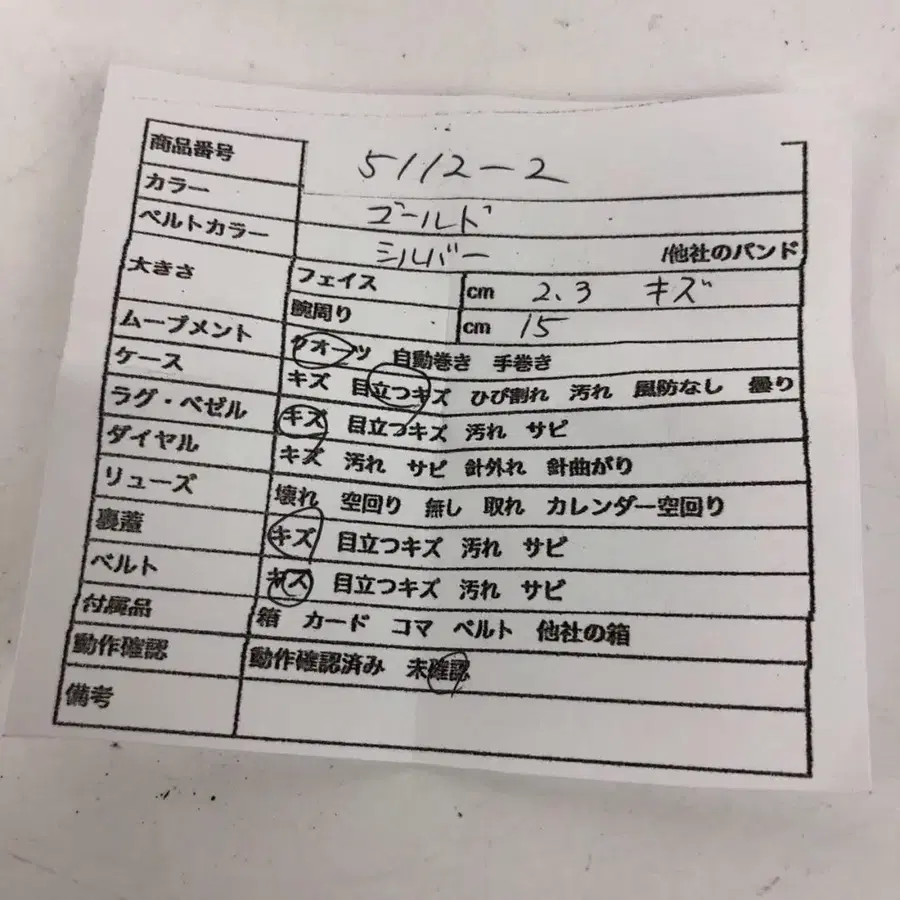 商品番号 5112-2
カラー ゴールド
ベルトカラー シルバー /他社のバンド
大きさ フェイス cm 2.3 キズ
腕周り cm 15
ムーブメント クオーツ 自動巻き 手巻き
ケース キズ 目立つキズ ひび割れ 汚れ 風防なし 曇り
ラグ・ベゼル キズ 目立つキズ 汚れ サビ
ダイヤル キズ 汚れ サビ 針外れ 針曲がり
リューズ 壊れ 空回り 無し 取れ カレンダー空回り
裏蓋 キズ 目立つキズ 汚れ サビ
ベルト キズ 目立つキズ 汚れ サビ
付属品 箱 カード コマ ベルト 他社の箱
動作確認 動作確認済み 未確認
備考